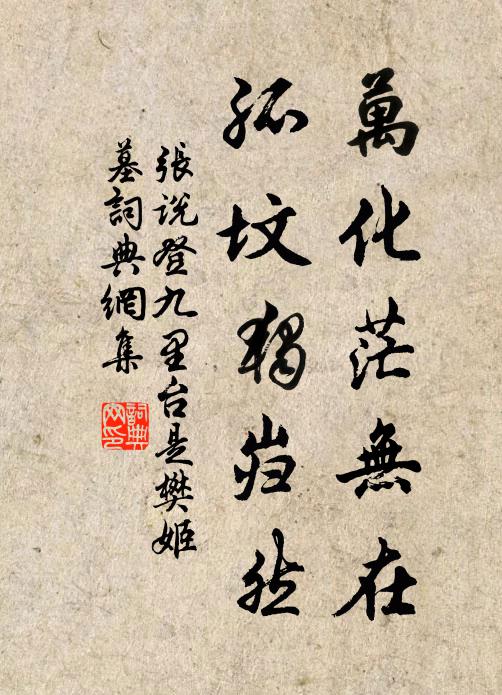 萬化茫無在
孤坟獨岿然
張說登九里台是樊姬
墓詞典網集
詞典
网印